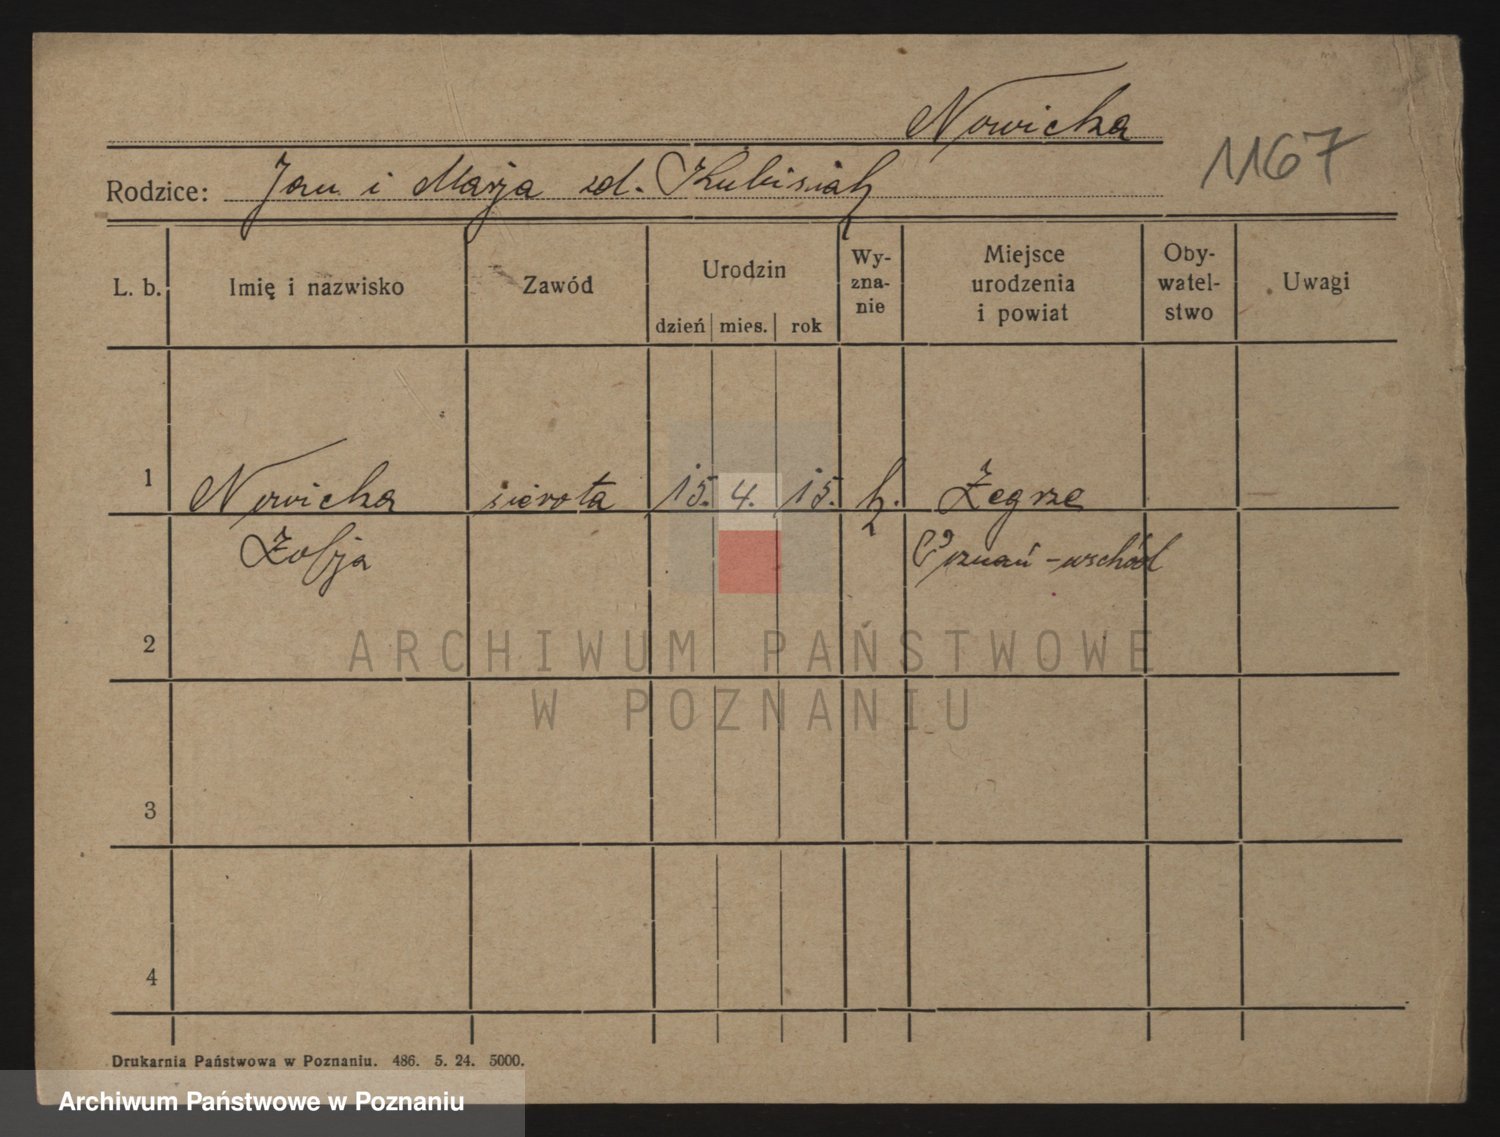 Nowicka
1167
Rodzice: Jan i Marja zd. Kubisiak
L. b. Imię i nazwisko Zawód Urodzin dzień mies. rok Wy-zna-nie Miejsce urodzenia i powiat Oby-watel-stwo Uwagi
1 Nowicka sierota 15. 4. 15. k. Żegrze
Zofja Poznań-wschód
2
ARCHIWUM PAŃSTWOWE
W POZNANIU
3
4
Drukarnia Państwowa w Poznaniu. 486. 5. 24. 5000.
Archiwum Państwowe w Poznaniu